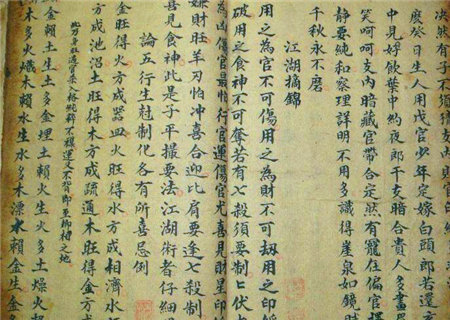 決然有子不須傷支出則官
癸日生人用戊官少年定嫁白頭郎若還
中見婷飲葉中納夜郎干支暗合貴人多畫
笑呵呵支內暗藏官帶合定然有寵在偏官
靜要純和察理詳明不用多識得崖泉如鏡
千秋永不磨
江湖摘錦
用之為官不可傷用之為財不可刼用之印
破用之食神不可奪若有七殺須要制七伏
為凶傷官最怕行官運傷官尤喜見財星印
嫌財旺羊刃怕冲喜合迎比肩要逢七殺制
喜見食神此是子平撮要法江湖術者仔細
論五行生尅制化各有所喜忌例
金旺得火方成器皿火旺得水方成相濟水
方成池沼土旺得木方成疏通木旺得金方成
金賴土生土多金埋土賴火生火多土燥火
生木多火熾木賴水生水多木漂水賴金生金